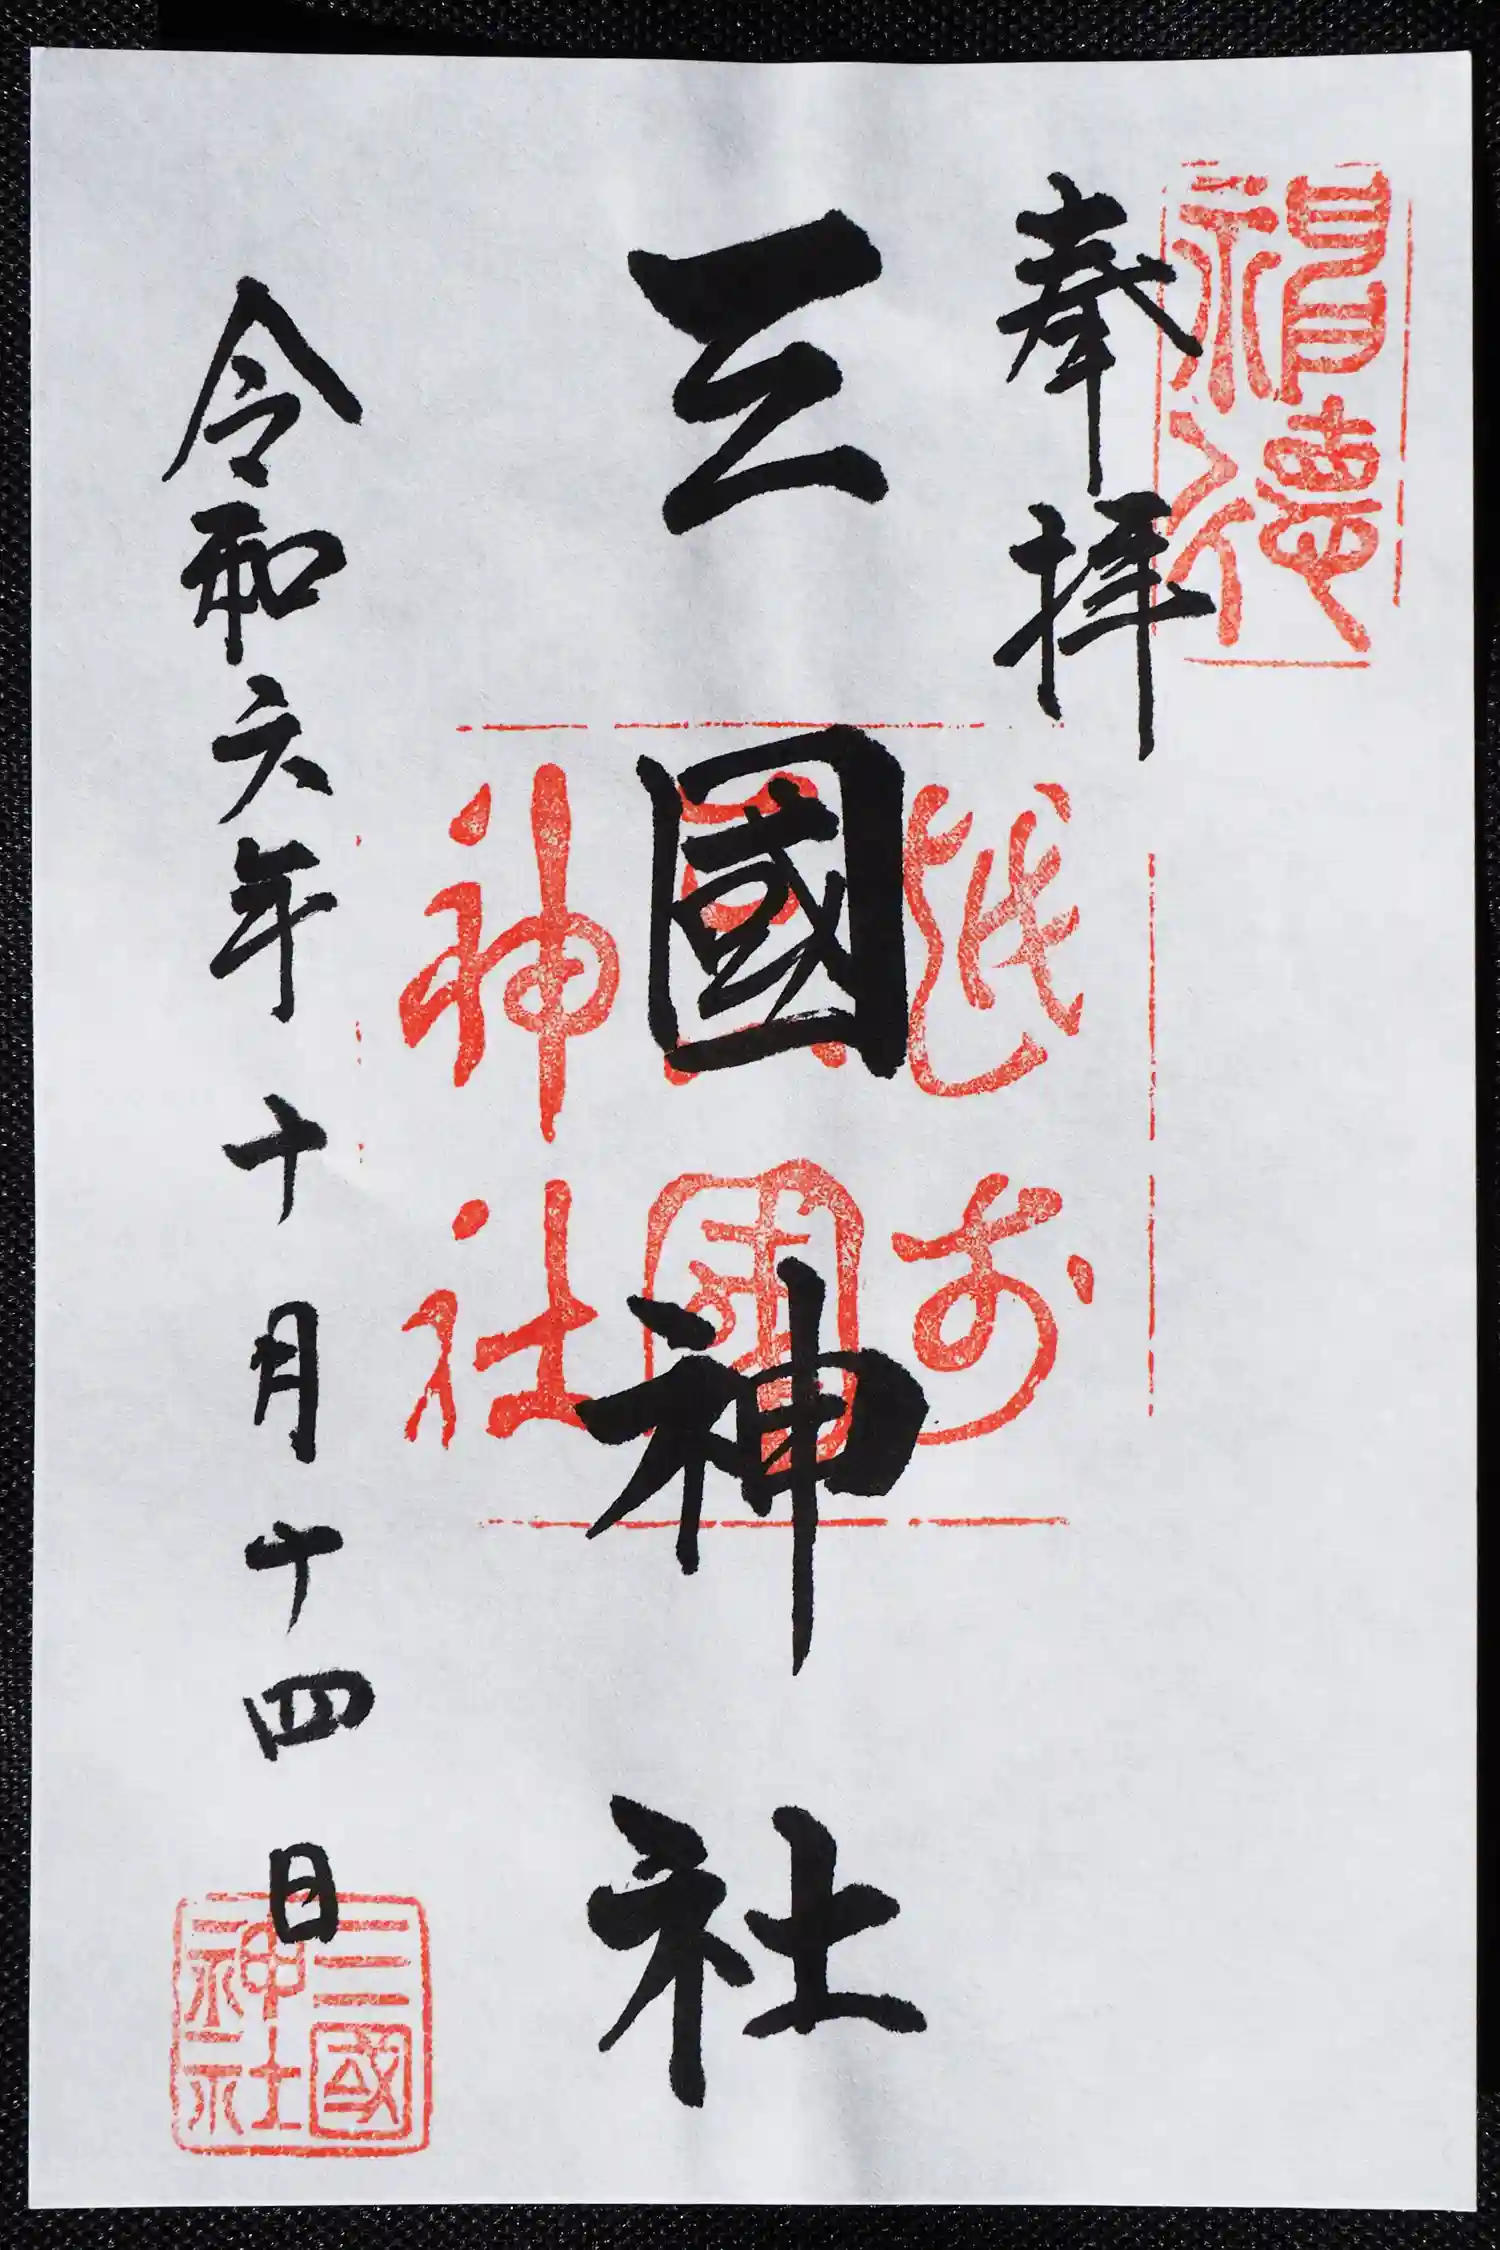 奉拝
三國神社
越前
三國
神社
令和六年十月十四日
三國
神社